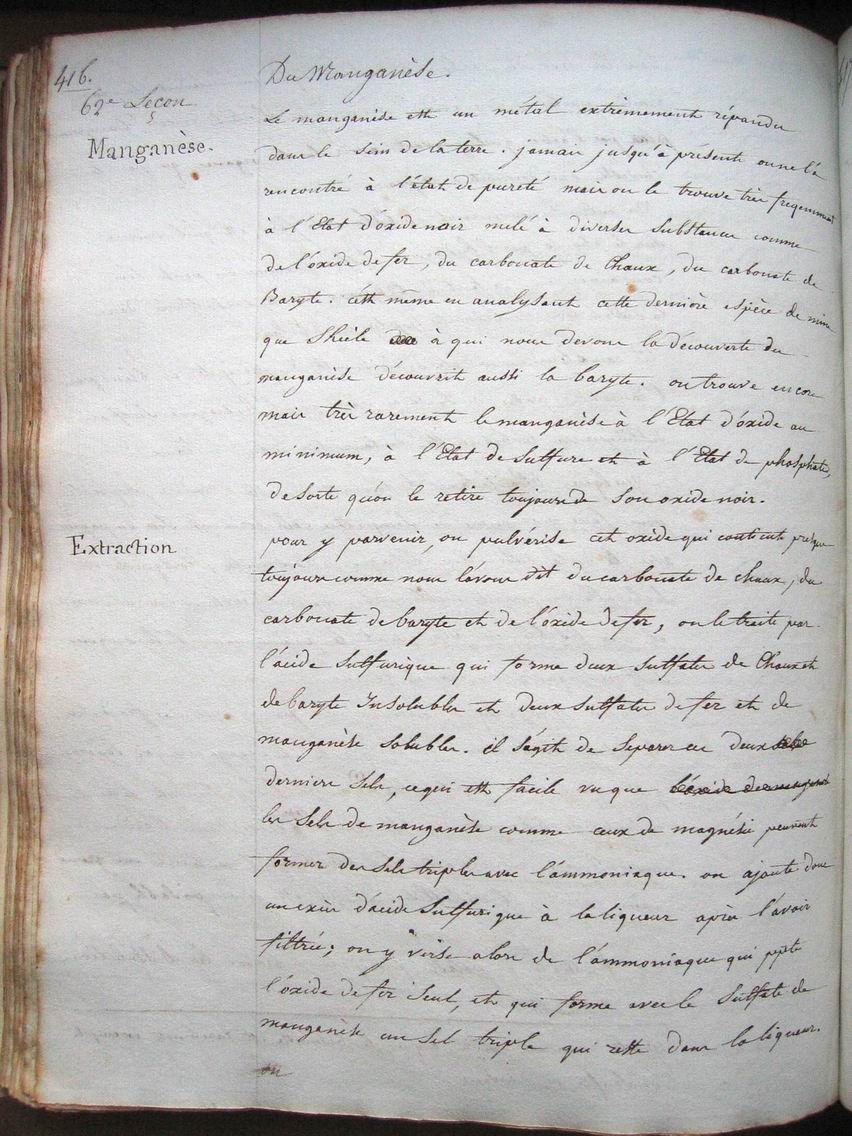 416.
62e Leçon
Manganèse.
Du Manganèse.
Le manganèse est un métal extrèmement répandu
dans le sein de la terre. jamais jusqu'à présent on ne l'a
rencontré à l'état de pureté mais on le trouve très freqemment
à l'Etat d'oxide noir mélé à diverses substances comme
de l'oxide de fer, du carbonate de Chaux, du carbonate de
Baryte. c'est même en analysant cette dernière espèce de mine
que Shéele à qui nous devons la découverte du
manganèse découvrit aussi la baryte. on trouve encore
mais très rarement le manganèse à l'Etat d'oxide au
minimum, à l'Etat de sulfure et à l'Etat de phosphate,
de sorte qu'on le retire toujours de son oxide noir.
Extraction
pour y parvenir, on pulvérise cet oxide qui contient presque
toujours comme nous l'avons dit du carbonate de chaux, du
carbonate de baryte et de l'oxide de fer, on le traite par
l'acide sulfurique qui forme deux sulfates de Chaux et
de baryte Insolubles et deux sulfates de fer et de
manganèse solubles. il s'agit de séparer ces deux
derniers sels, ce qui est facile vu que
les sels de manganèse comme ceux de magnésie peuvent
former des sels triples avec l'ammoniaque. on ajoute donc
un excès d'acide sulfurique à la liqueur après l'avoir
filtrée; on y verse alors de l'ammoniaque qui ppte
l'oxide de fer seul, et qui forme avec le sulfate de
manganèse un sel triple qui reste dans la liqueur.
on